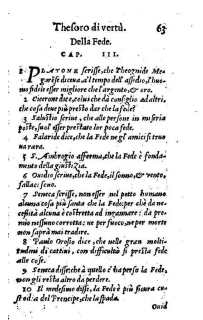 Thesoro di vertù. 63
Della Fede.
CAP. III.
1 PLATONE scrisse, che Theognide Me-
garese diceua, al tempo dell' assedio, l'huo-
mo fidele esser migliore che l'argento, & oro.
2 Cicerone dice, colui che dà consiglio ad altri,
che cosa deue più presto dar che la fede?
3 Salustio scriue, che alle persone in miseria
poste, suol' esser prestato lor poca fede.
4 Falaride dice, che la Fede ne gl'amici si truo
ua rara.
5 S. Ambrogio afferma, che la Fede è fonda-
mento della giustitia.
6 Ouidio scriue, che la Fede, il sonno, & vento,
fallaci sono.
7 Seneca scrisse, non esser nel petto humano
alcuna cosa più santa che la Fede: per chè da ne-
cessità alcuna è costretta ad ingannare: da pre-
mio nessuno corrotta: ne per fuoco, ne per morte
non saprà mai tradire.
8 Paulo Orosio dice, che nelle gran molti-
tudini di cattiui, con difficultà si presta fede
alle cose.
9 Seneca disse, che à quelle c'ha perso la Fede,
non gli resta altro da perdere.
10 Il medesimo disse, la Fede è più sicura cu-
stodia del Prencipe, che la spada.
Ouid